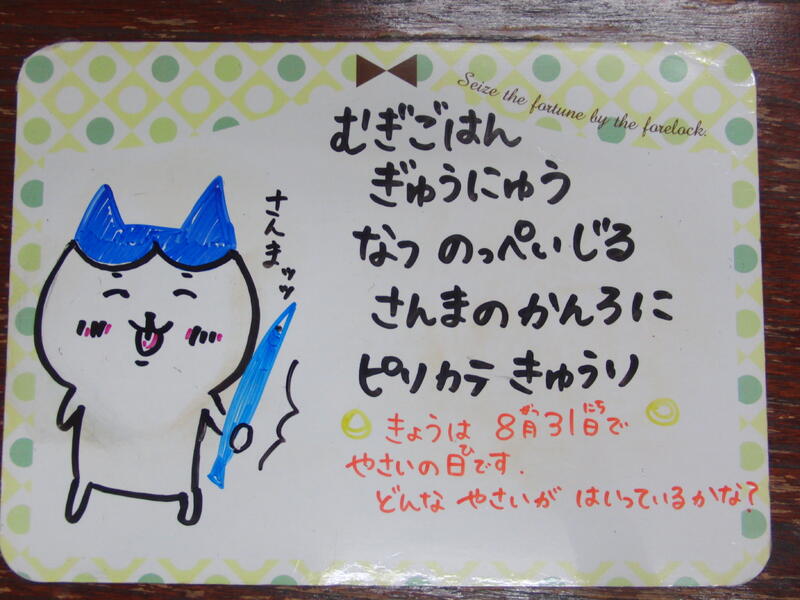 Seize the fortune by the forelock.
むぎごはん
ぎゅうにゅう
なつ のっぺいじる
さんまのかんろに
ピリカラ きゅうり
さんまッッ
きょうは 8月31日で
がつ にち
やさいの日です.
ひ
どんな やさいが はいっているかな?